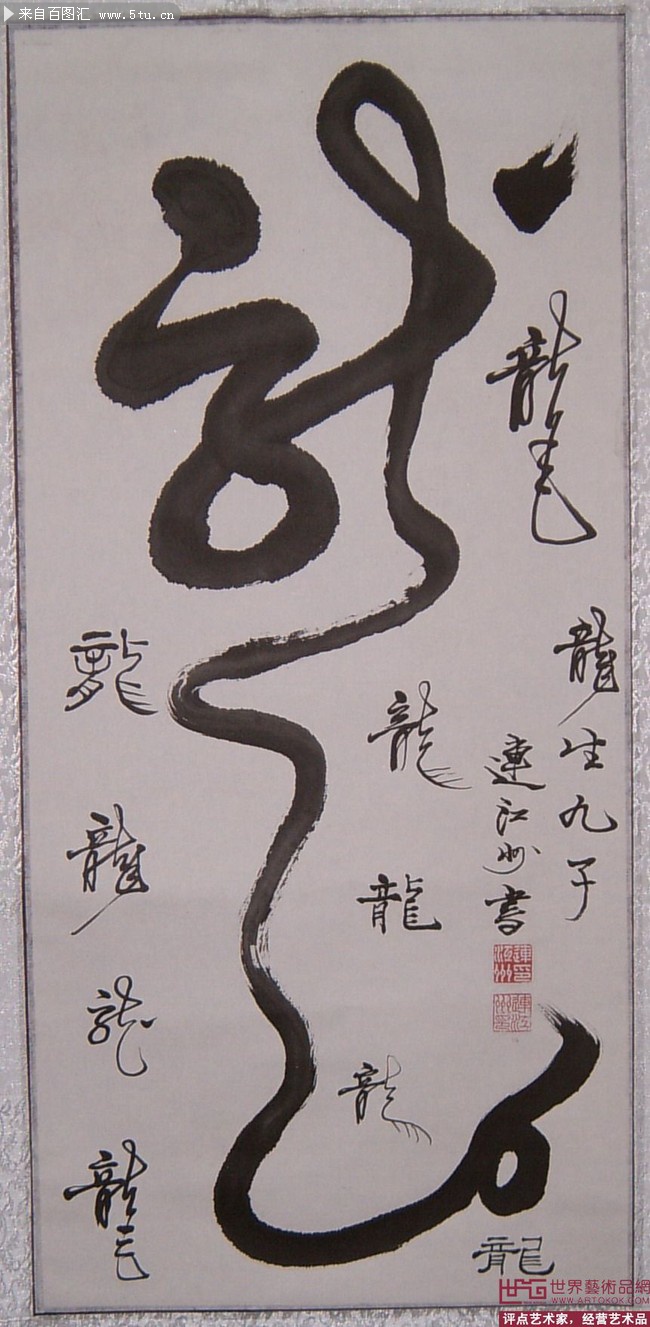 来自百图汇 www.5tu.cn
龍
龍
龍生九子
連江州書
龍
龍
龍
龍
龍
龍
龍
龍
世界藝術品網
WWW.ARTOKOK.COM
评点艺术家，经营艺术品